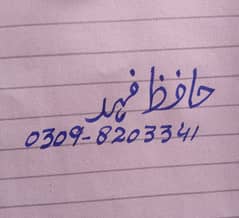 حافظ فہد
0309-8203341